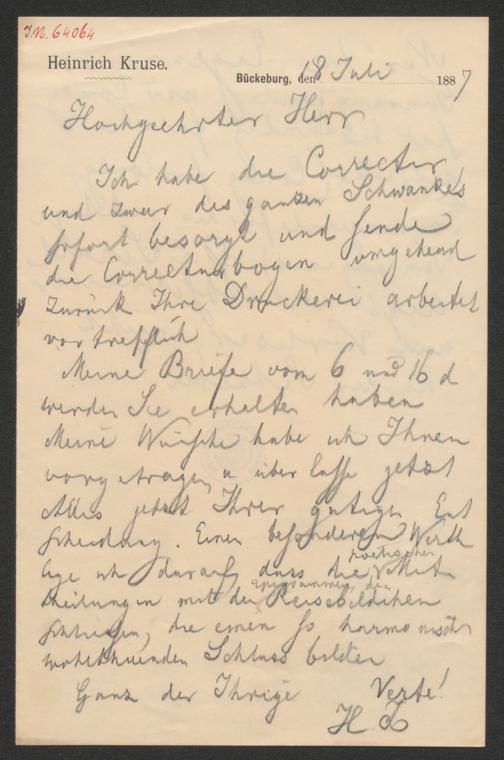 J.N. 64064
Heinrich Kruse.
Bückeburg, den 18 Juli 1887
Hochgeehrter Herr
Ich habe die Correctur
und zwar des ganzen Schwankes
sofort besorgt und sende
die Correcturbogen umgehend
zurück Ihre Druckerei arbeitet
vortrefflich
Meine Briefe vom 6 und 16 d
werden Sie erhalten haben
Meine Wünsche habe ich Ihnen
vorgetragen u überlasse jetzt
Alles jetzt Ihrer gütigen Ent
scheidung. Einen besonderen Werth
lege ich darauf, dass die poetischen Mit
theilungen mit den Epigrammen, den Reisebildchen
schliessen, die einen so harmonisch
wohlthuenden Schluss bilden
Ganz der Ihrige Verte!
H. K